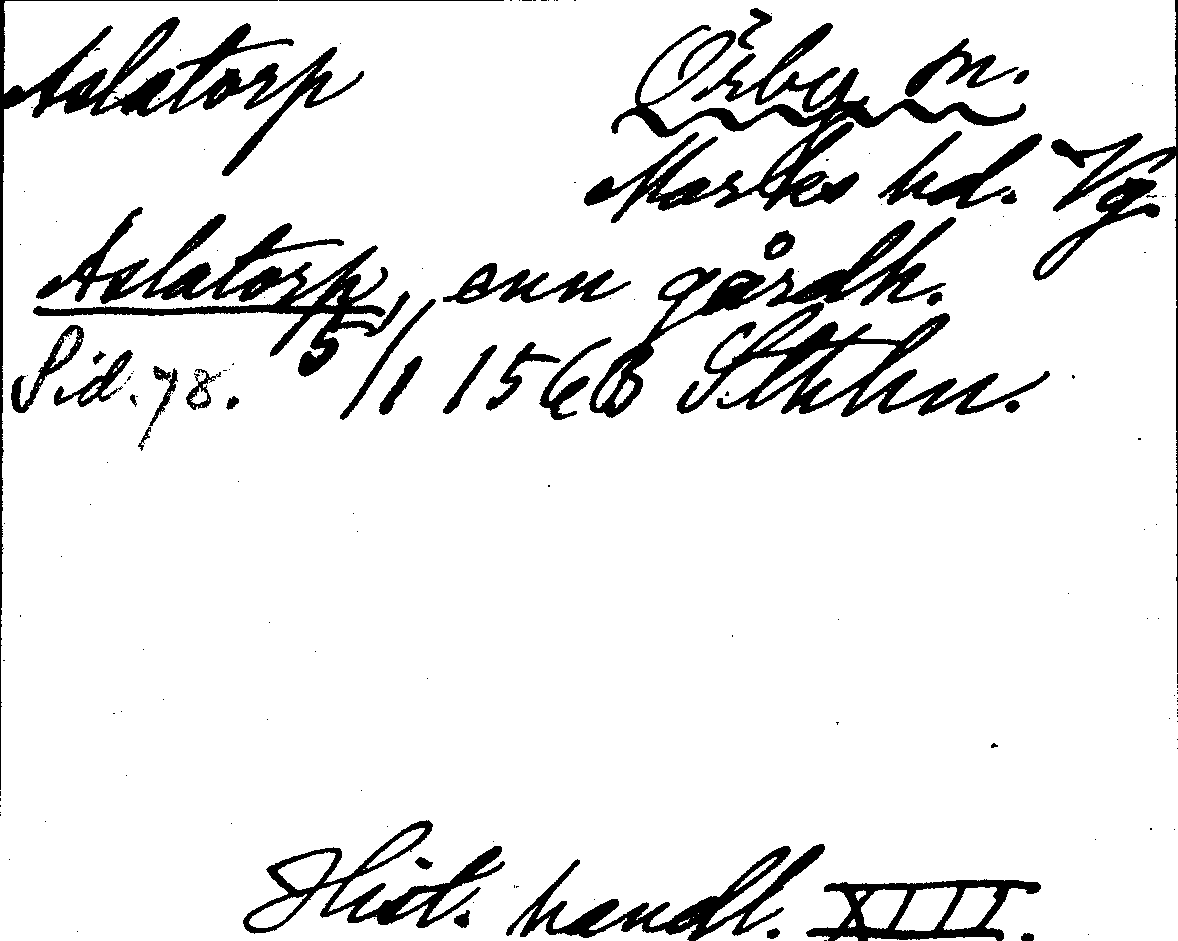 Aslatorp Örby sn.
Marks hd. Vg.
Aslatorp, enn gårdh.
Sid. 78. 5/1 1563 Stkhn.
Hist. handl. XIII.